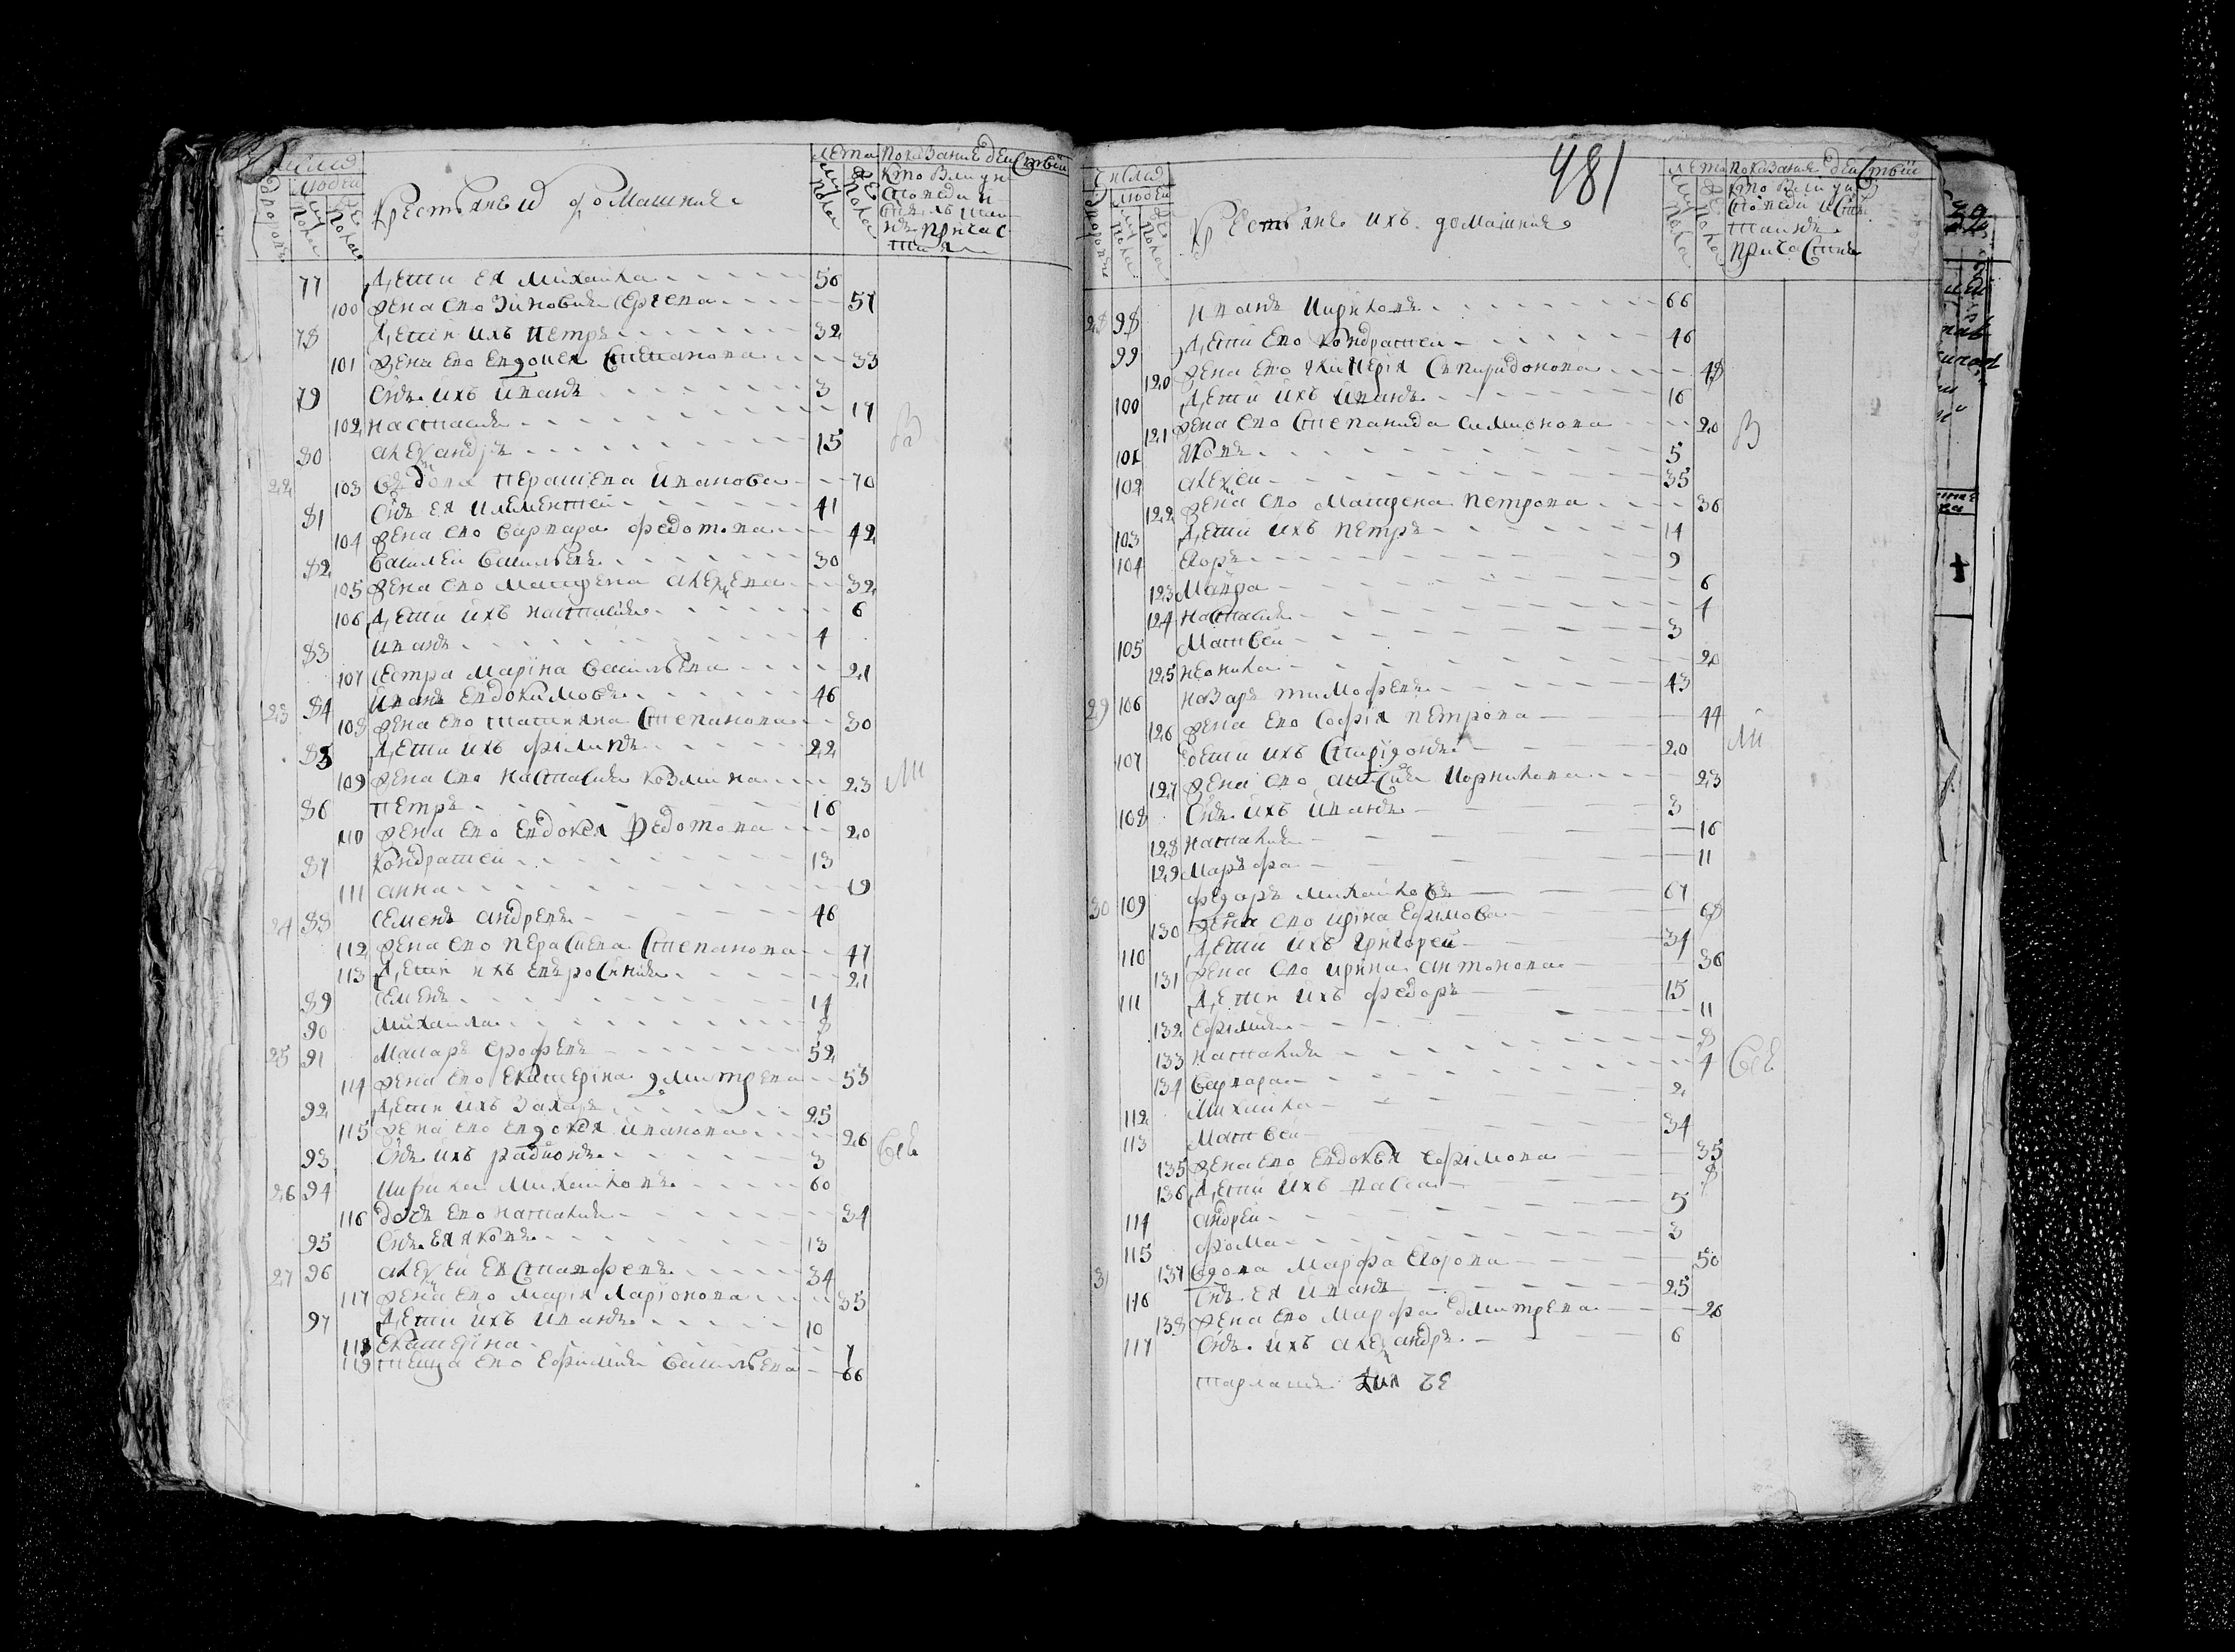 число
люди
дворовъ
муж пола
же пола
Крестьяне и домашние
лета
муж пола
же пола
показание действий
кто были у исповеди и святыхъ таинъ причастия
77 Дети ея михаила 56
100 жена ево Зиновия Сергева 57
78 Дети ихъ петръ 32
101 жена ево евдокея степанова 33
79 Снъ ихъ иванъ 3
102 настасия 17
80 алеѯандръ 15
22 103 вдова перасиева иванова 70
81 Снъ ея клементей 41
104 жена ево варвара федотова 42
82 василей васильевъ 30
105 жена ево матрена алеѯева 32
106 Дети ихъ настасия 6
83 иванъ 4
107 сестра марина васильева 21
23 84 иванъ евдокимовъ 46
108 жена ево татияна степанова 30
85 Дети ихъ филипъ 22
109 жена ево настасия козмина 23
86 петръ 16
110 жена ево евдокея федотова 20
87 кондратей 13
111 анна 19
24 88 семенъ андревъ 46
112 жена ево перасиева степанова 47
113 Дети ихъ евросиния 21
89 семенъ 14
90 михаила 8
25 91 макаръ ерофевъ 52
114 жена ево екатерина дмитрева 53
92 Дети ихъ захаръ 25
115 жена ево евдокея иванова 26
93 Снъ ихъ радионъ 3
26 94 кирила михайловъ 60
116 дочь ево наталия 34
95 Снъ ея яковъ 13
27 96 алеѯей евстафевъ 34
117 жена ево мария ларионова 35
97 Дети ихъ иванъ 10
118 екатерина 7
119 теща ево ефимия васильева 66
481
число
люди
дворовъ
муж пола
же пола
Крестьяне ихъ домашние
лета
муж пола
же пола
показание действий
28 98 иванъ кириловъ 66
99 Дети ево кондратей 46
120 жена ево гликерия спиридонова 48
100 Дети ихъ иванъ 16
121 жена ево степанида симионова 20
101 яковъ 5
102 алеѯей 35
122 жена ево матрена петрова 36
103 Дети ихъ петръ 14
104 егоръ 9
123 мавра 6
124 настасия 4
105 матвей 3
125 неонила 20
29 106 назаръ тимофевъ 43
126 жена ево софия петрова 44
107 дети ихъ спиридонъ 20
127 жена ево корнилова 23
108 Снъ ихъ иванъ 3
128 наталия 16
129 маръфа 11
30 109 федаръ михайловъ 67
130 жена ево ирина ефимова 68
110 Дети ихъ григорей 34
131 жена ево ирина антонова 36
111 Дети ихъ федоръ 15
132 ефимия 11
133 наталия 8
134 варвара 4
112 михаила 2
113 матвей 34
135 жена ево евдокея ефимова 35
136 Дети ихъ 8
114 андрей 5
115 фома 3
31 137 вдова марфа егорова 50
116 Снъ ея иванъ 25
138 жена ево марфа дмитрева 26
117 Снъ ихъ алеѯандръ 6